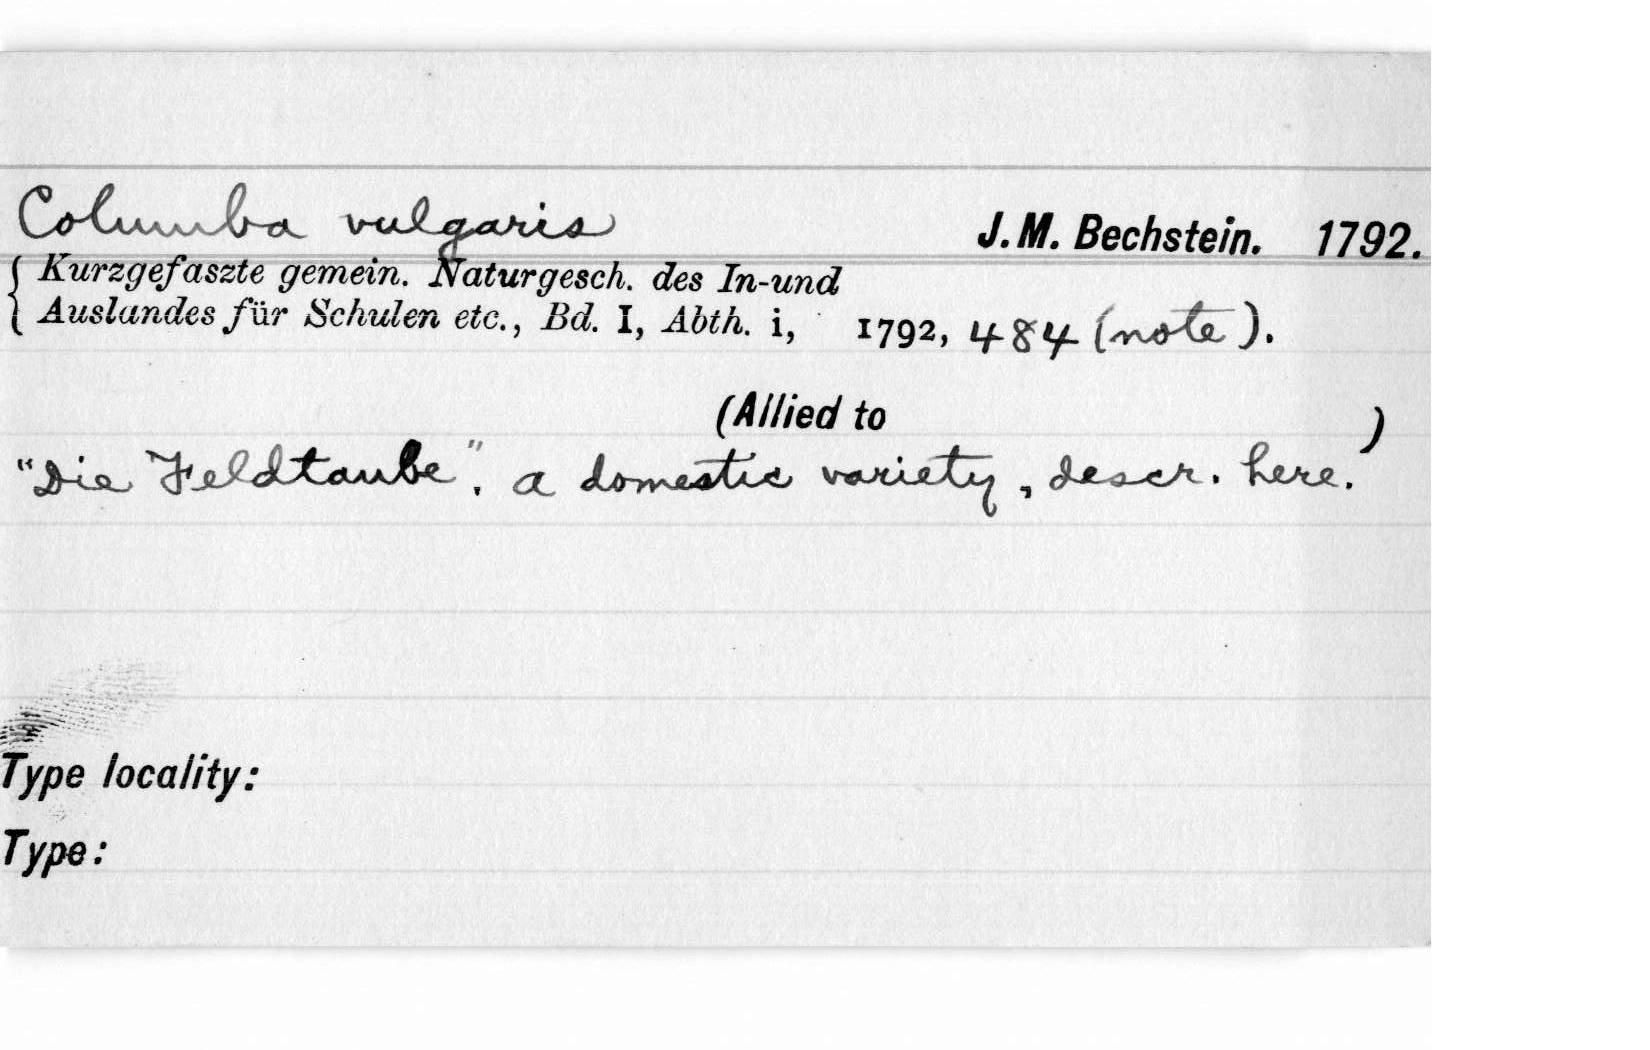 Columba vulgaris J. M. Bechstein. 1792.
Kurzgefaszte gemein. Naturgesch. des In-und
Auslandes für Schulen etc., Bd. I, Abth. i, 1792, 484 (note).
(Allied to )
"Die Feldtaube". a domestic variety, descr. here.
Type locality:
Type: